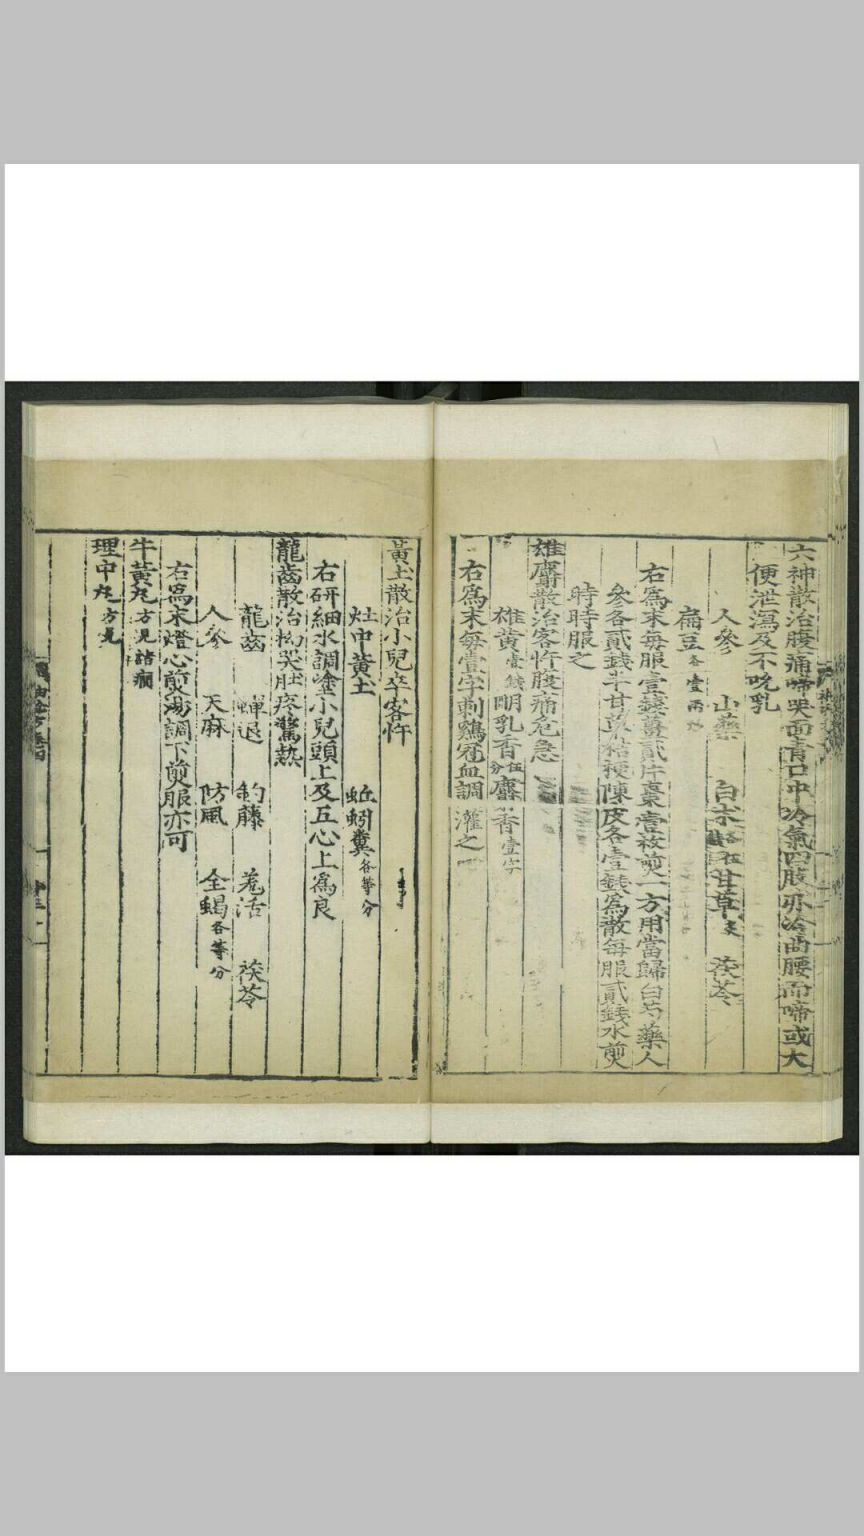 六神散治腹痛啼哭面青口中冷氣四肢亦冷曲腰而啼或大
便泄瀉及不吮乳
人參 山藥 白朮 甘草 茯苓
扁豆各壹兩
右爲末每服壹錢薑貳片棗壹枚煎一方用當歸白芍藥人
參各貳錢半甘草桔梗陳皮各壹錢爲散每服貳錢水煎
時時服之
雄麝散治客忤腹痛危急
雄黃壹錢 明乳香伍分 麝香壹字
右爲末每壹字刺鷄冠血調灌之
黃土散治小兒卒客忤
灶中黃土 蚯蚓糞各等分
右研細水調塗小兒頭上及五心上爲良
龍齒散治拗哭肚疼驚熱
龍齒 蟬退 釣藤 羗活 茯苓
人參 天麻 防風 全蝎各等分
右爲末燈心煎湯調下煎服亦可
牛黃丸方見諸癇
理中丸方見